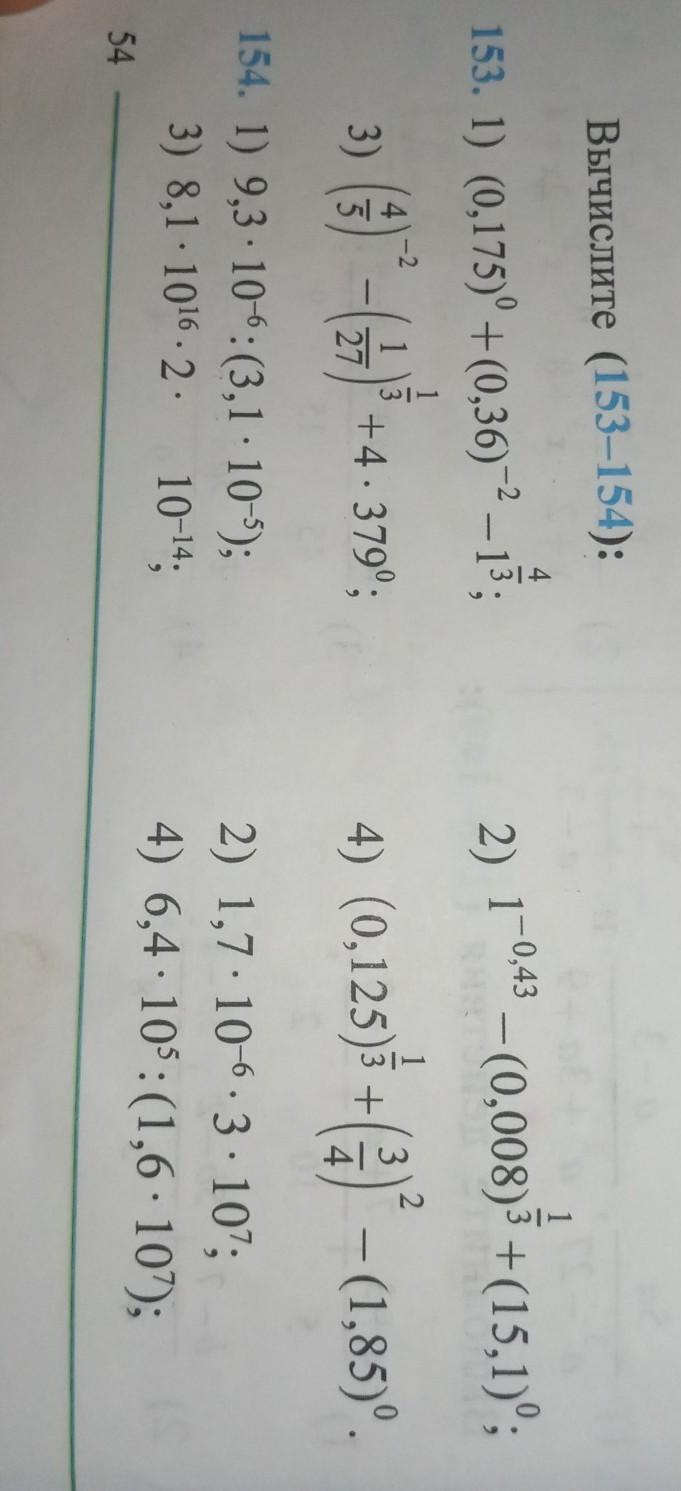 Вычислите (153–154):
153. 1) (0,175)⁰ + (0,36)⁻² − 1^(4/3); 2) 1^(−0,43) − (0,008)^(1/3) + (15,1)⁰;
3) (4/5)⁻² − (1/27)^(1/3) + 4 · 379⁰; 4) (0,125)^(1/3) + (3/4)² − (1,85)⁰.
154. 1) 9,3 · 10⁻⁶ : (3,1 · 10⁻⁵); 2) 1,7 · 10⁻⁶ · 3 · 10⁷;
3) 8,1 · 10¹⁶ · 2 · 10⁻¹⁴; 4) 6,4 · 10⁵ : (1,6 · 10⁷);
54